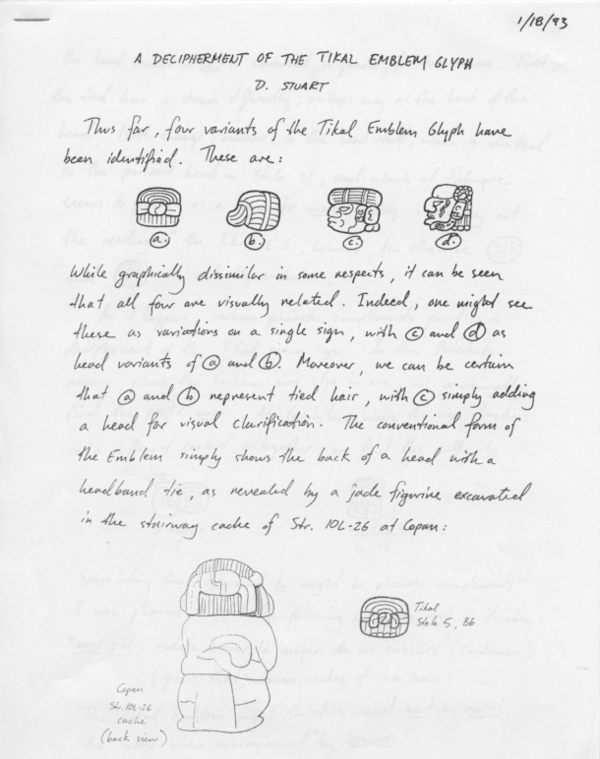 1/18/93
A DECIPHERMENT OF THE TIKAL EMBLEM GLYPH
D. STUART
Thus far, four variants of the Tikal Emblem Glyph have
been identified. These are:
a. b. c. d.
While graphically dissimilar in some respects, it can be seen
that all four are visually related. Indeed, one might see
these as variations on a single sign, with c and d as
head variants of a and b. Moreover, we can be certain
that a and b represent tied hair, with c simply adding
a head for visual clarification. The conventional form of
the Emblem simply shows the back of a head with a
headband tie, as revealed by a jade figurine excavated
in the stairway cache of Str. 10L-26 at Copan:
Tikal
Stela 5, B6
Copan
Str. 10L-26
cache
(back view)